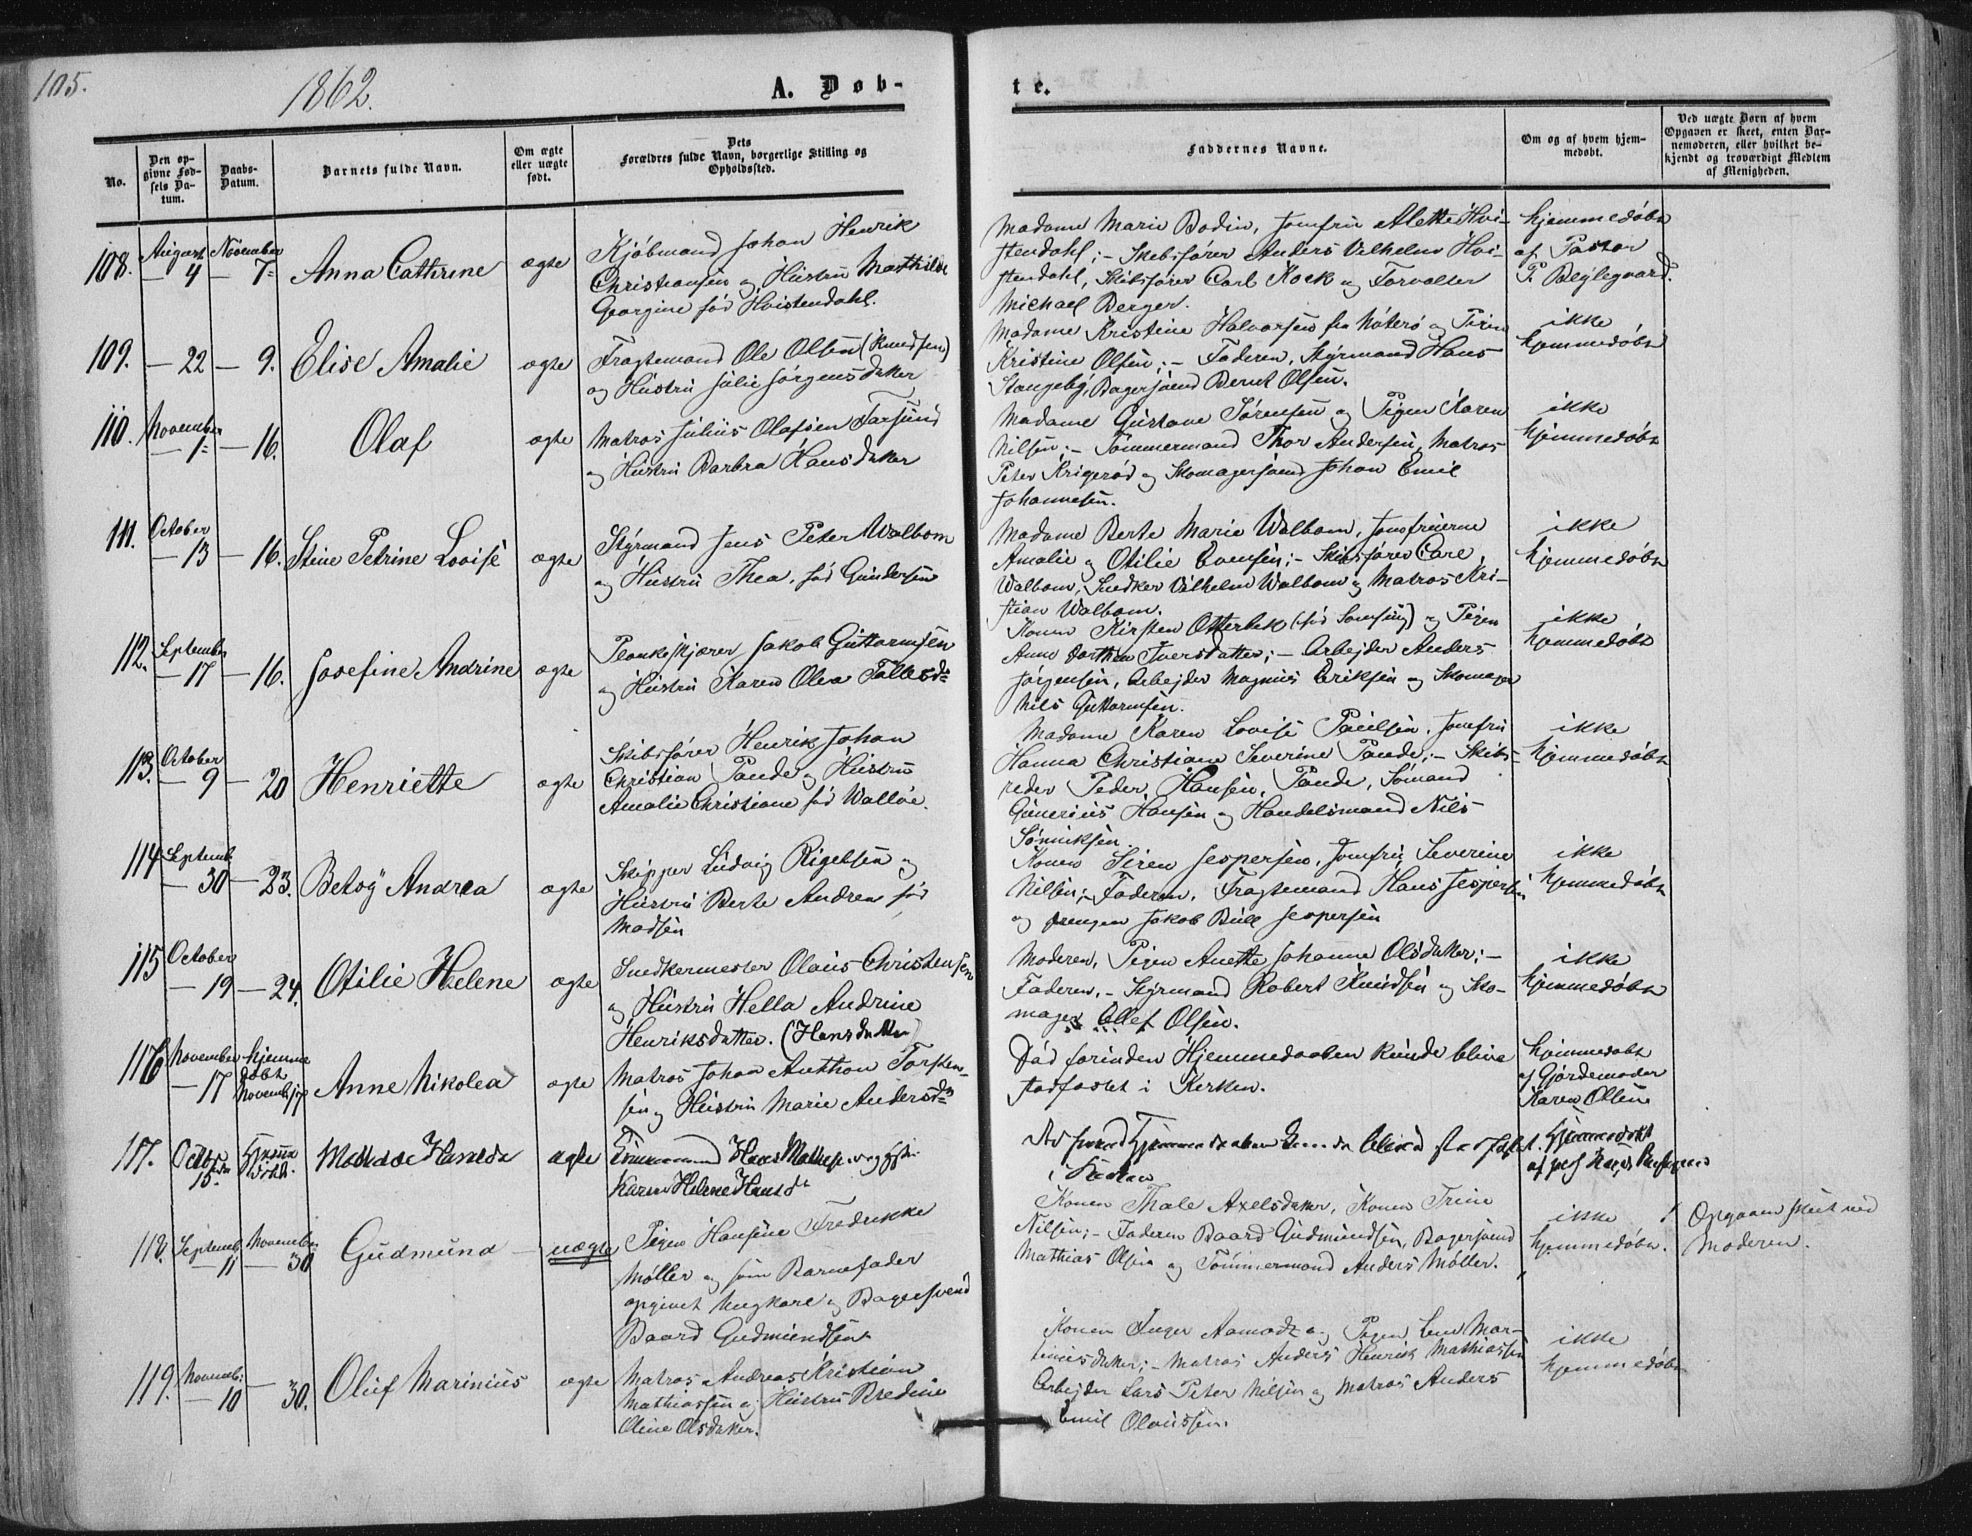 105.
1862.
A. Døb-
te.
No.
Den op-
givne Fød-
sels Da-
tum.
Daabs-
Datum.
Barnets fulde Navn.
Om ægte
eller uægte
født.
Dets
Forældres fulde Navn, borgerlige Stilling og
Opholdssted.
Faddernes Navne.
Om og af hvem hjem-
medøbt.
Ved uægte Børn af hvem
Opgaven er skeet, enten Bar-
nemoderen, eller hvilket be-
kjendt og troværdigt Medlem
af Menigheden.
108.
August
— 4
November
— 7.
Anna Cathrine
ægte
Kjøbmand Johan Henrik
Christiansen og Hustru Mathilde
Georgine född Hvistendahl.
Madame Marie Bodin, Jomfru Alette Hvi-
stendahl; — Skibsfører Anders Vilhelm Hvi-
stendahl, Skibsfører Carl Kock og Forvalter
Michael Berger.
hjemmedøbt
af Pastor
P. Bejlegaard.
109.
— 22
— 9.
Elise Amalie
ægte
Fragtemand Ole Olsen (Knudsen)
og Hustru Julie Jørgensdatter
Madame Kristine Halvorsen fra Nøterø og Pigen
Kristine Olsen; — Faderen, Styrmand Hans
Stangeby, Bagersvend Bernt Olsen.
ikke
hjemmedøbt
110.
November
— 1.
— 16.
Olaf
ægte
Matros Julius Olafsen Farsund
og Hustru Barbra Hansdatter
Madame Gustave Sørensen og Pigen Karen
Nilsen; — Tømmermand Thor Andersen, Matros
Peter Krigerød og Skomagersvend Johan Emil
Johannesen.
ikke
hjemmedøbt
111.
October
— 13
— 16.
Stine Petrine Lovise
ægte
Styrmand Jens Peter Walbom
og Hustru Thea, fød Gundersen
Madame Berte Marie Walbom, Jomfruerne
Amalie og Otilie Evensen; — Skibsfører Carl
Walbom, Snedker Vilhelm Walbom og Matros Kri-
stian Walbom.
ikke
hjemmedøbt
112.
September
— 17
— 16.
Josefine Andrine
ægte
Plankeskjærer Jakob Guttormsen
og Hustru Karen Olea Tollesd.
Konen Kirsten Otterbek (fød ) og Pigen
Anne Dorthea Iversdatter; — Arbejder Anders
Jørgensen, Arbejder Magnus Eriksen og Skomager
Nils Guttormsen.
ikke
hjemmedøbt
113.
October
— 9
— 20
Henriette
ægte
Skibsfører Henrik Johan
Christian Pande og Hustru
Amalie Christiane fød Walløe.
Madame Karen Lovise Paulsen, Jomfru
Hanna Christiane Severine Pande; — Skibs-
reder Peder Hansen Pande, Sømand
Gunerius Hansen og Handelsmand Nils
Sønniksen.
ikke
hjemmedøbt
114
Septemb.
— 30
— 23.
Betsy Andrea
ægte
Skipper Ludvig Rigelsen og
Hustru Berte Andrea fød
Madsen
Konen Siren Jespersen, Jomfru Severine
Nilsen; Faderen, Fragtemand Hans Jespersen
og Drengen Jakob Bull Jespersen
ikke
hjemmedøbt
115
October
— 19
— 24.
Otilie Helene
ægte
Snedkermester Olaus Christensen
og Hustru Hella Andrine
Henriksdatter. (Hansdatter)
Moderen, Pigen Anette Johanne Olsdatter; —
Faderen, — Styrmand Robert Knudsen og Sko-
mager Ellef Olsen.
ikke
hjemmedøbt
116
November
— 17
hjemme
døbt
Novemb. 17
Anne Nikolea
ægte
Matros Johan Anthon Torsten-
sen og Hustru Marie Andersd.
Død forinden Hjemmedaaben kunde blive
stadfæstet i Kirken.
hjemmedøbt
af Gjordemoder
Karen Olsen
117.
Octbr
15.
Hjemme
døbt.
ægte
Karen Helene Hansd.
Død forend Hjemmedaaben kunde blive stadfæstet
i Kirken
Hjemmedøbt
118.
Septemb.
— 11
November
— 30
Gudmund
uægte
Pigen Hansine Fredrikke
Møller og som Barnefader
opgivet Ungkarl og Bagersvend
Baard Gudmundsen
Konen Thale Axelsdatter, Konen Trine
Nilsen; — Faderen Baard Gudmundsen, Bagersvend
Mathias Olsen og Tømmermand Anders Møller.
ikke
hjemmedøbt.
Opgaven skeet ved
Moderen.
119.
Novemb:
— 10
— 30.
Oluf Marinius
ægte
Matros Andreas Kristian
Mathiassen og Hustru Bredine
Oline Olsdatter.
Konen Inger Aamodt og Pigen Line Mar-
tinusdatter; — Matros Anders Henrik Mathiassen
Arbejder Lars Peter Nilsen og Matros Anders
Emil Olaussen.
ikke
hjemmedøbt